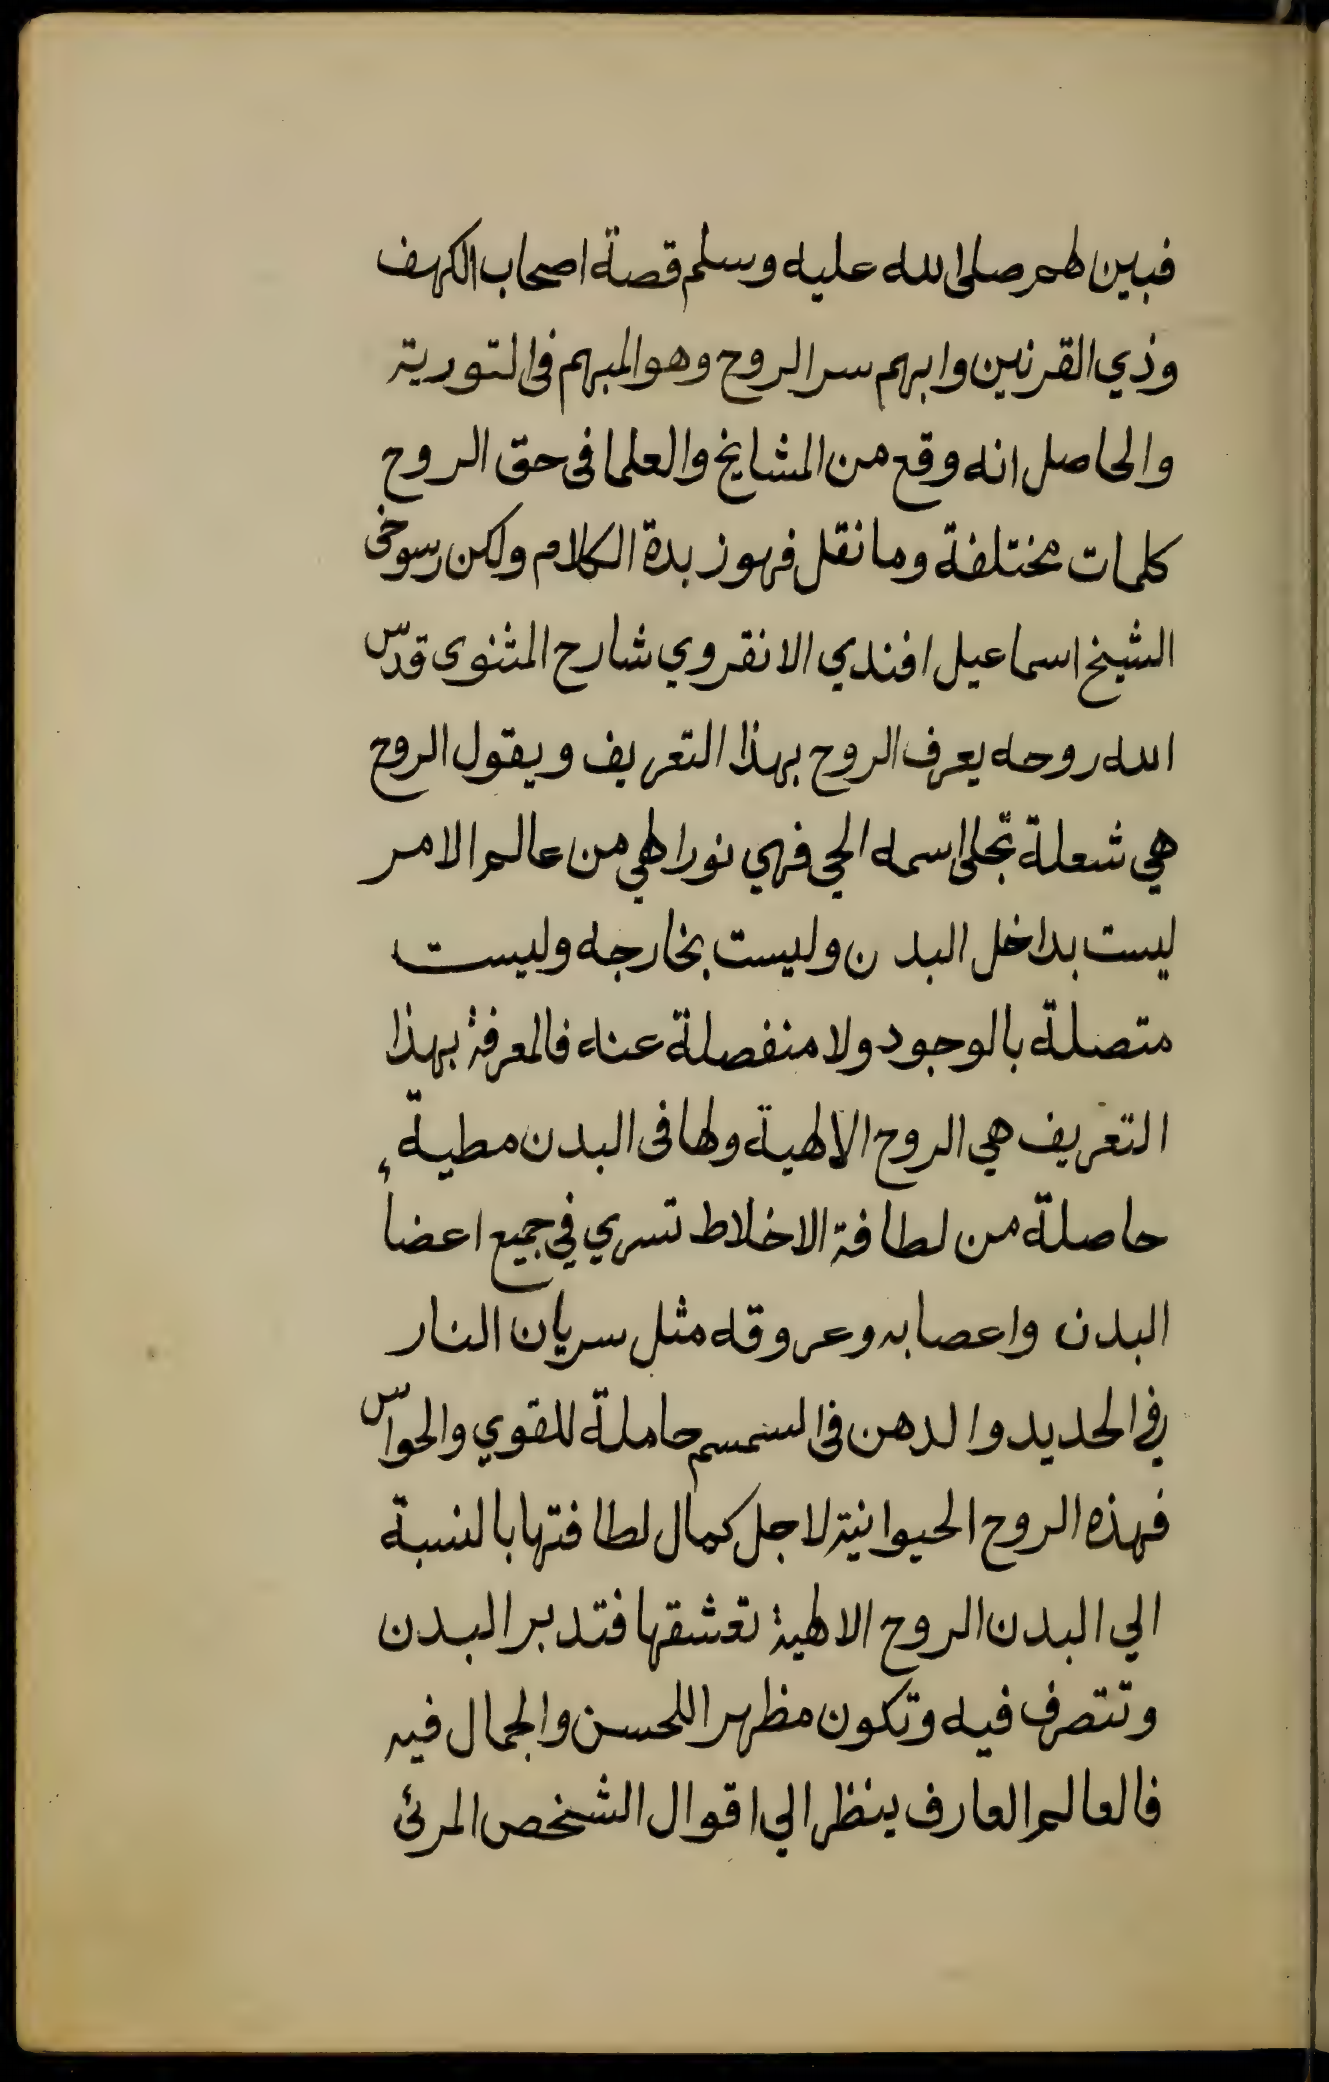 فبين لهم صلى الله عليه وسلم قصة اصحاب الكهف
وذي القرنين وابهم سر الروح وهو المبهم في التورية
والحاصل انه وقع من المشايخ والعلما في حق الروح
كلمات مختلفة وما نقل فهو زبدة الكلام ولكن رسوخي
الشيخ اسماعيل افندي الانقروي شارح المثنوى قدّس
الله روحه يعرف الروح بهذا التعريف ويقول الروح
هي شعلة تجلى اسمه الحي فهي نور الهي من عالم الامر
ليست بداخل البدن وليست بخارجه وليست
متصلة بالوجود ولا منفصلة عنه فالمعرفة بهذا
التعريف هي الروح الالهية ولها في البدن مطية
حاصلة من لطافة الاخلاط تسري في جميع اعضاء
البدن واعصابه وعروقه مثل سريان النار
في الحديد والدهن في السمسم حاملة للقوي والحواسّ
فهذه الروح الحيوانية لاجل كمال لطافتها بالنسبة
الي البدن الروح الالهية تعشقها فتدبر البدن
وتتصرف فيه وتكون مظهرا للحسن والجمال فيه
فالعالم العارف ينظر الي اقوال الشخص المرئي